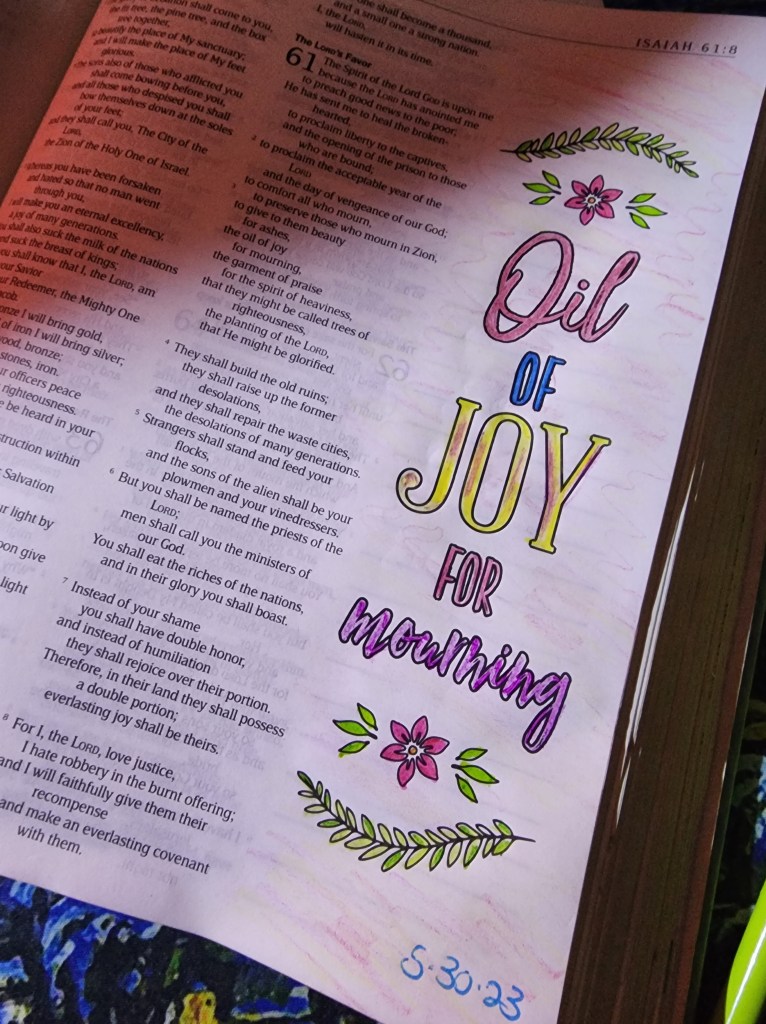 ISAIAH 61:8
shall come to you,
the pine tree, and the box
tree together,
the place of My sanctuary;
and I will make the place of My feet
glorious.
sons also of those who afflicted you
shall come bowing before you,
and all those who despised you shall
bow themselves down at the soles
of your feet;
they shall call you, The City of the
LORD,
the Zion of the Holy One of Israel.
you have been forsaken
and hated so that no man went
through you,
will make you an eternal excellency,
a joy of many generations.
shall also suck the milk of the nations
suck the breast of kings;
shall know that I, the LORD, am
Savior
Redeemer, the Mighty One
I will bring gold,
of iron I will bring silver;
bronze;
stones, iron.
officers peace
righteousness.
be heard in your
within
Salvation
light by
give
light
one shall become a thousand,
and a small one a strong nation.
I, the LORD,
will hasten it in its time.
The LORD's Favor
61 The Spirit of the Lord GOD is upon me
because the LORD has anointed me
to preach good news to the poor;
He has sent me to heal the broken-
hearted,
to proclaim liberty to the captives,
and the opening of the prison to those
who are bound;
2 to proclaim the acceptable year of the
LORD
and the day of vengeance of our God;
to comfort all who mourn,
3 to preserve those who mourn in Zion,
to give to them beauty
for ashes,
the oil of joy
for mourning,
the garment of praise
for the spirit of heaviness,
that they might be called trees of
righteousness,
the planting of the LORD,
that He might be glorified.
4 They shall build the old ruins;
they shall raise up the former
desolations,
and they shall repair the waste cities,
the desolations of many generations.
5 Strangers shall stand and feed your
flocks,
and the sons of the alien shall be your
plowmen and your vinedressers.
6 But you shall be named the priests of the
LORD;
men shall call you the ministers of
our God.
You shall eat the riches of the nations,
and in their glory you shall boast.
7 Instead of your shame
you shall have double honor,
and instead of humiliation
they shall rejoice over their portion.
Therefore, in their land they shall possess
a double portion;
everlasting joy shall be theirs.
8 For I, the LORD, love justice,
I hate robbery in the burnt offering;
and I will faithfully give them their
recompense
and make an everlasting covenant
with them.
Oil
OF
JOY
FOR
mourning
5·30·23